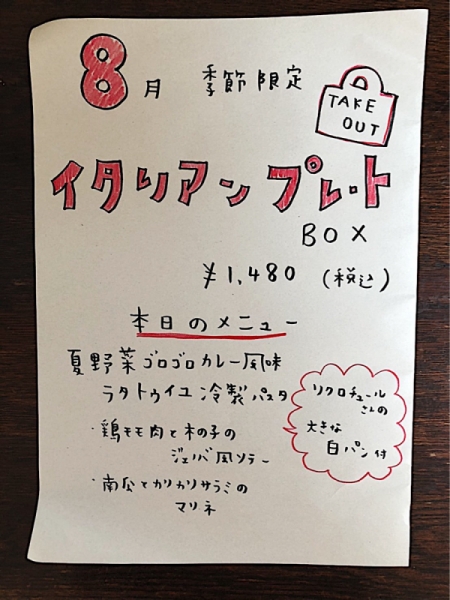 8月 季節限定
TAKE
OUT
イタリアンプレート
BOX
¥1,480 (税込)
本日のメニュー
夏野菜ゴロゴロカレー風味
ラタトゥイユ冷製パスタ
・鶏モモ肉と木の子の
ジェノバ風ソテー
・南瓜とカリカリサラミの
マリネ
リクロチュール
さんの
大きな
白パン付